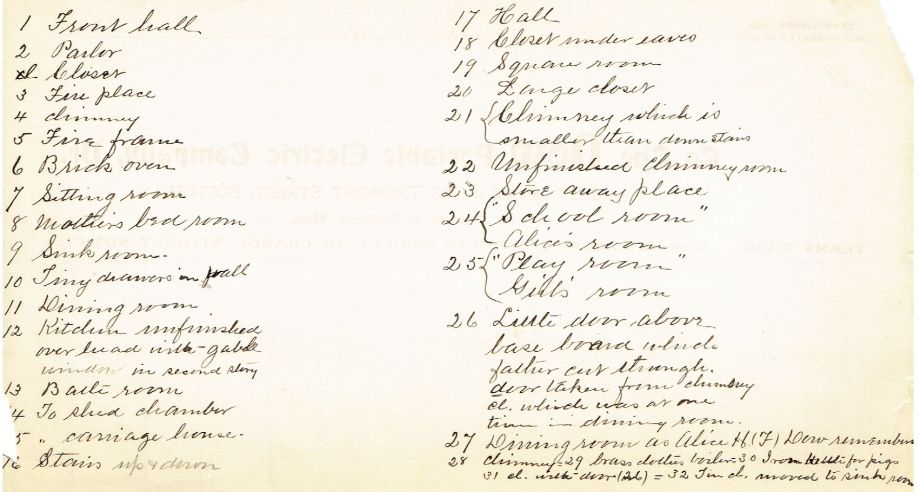 1 Front hall
2 Parlor
cl. Closet
3 Fire place
4 chimney
5 Fire frame
6 Brick oven
7 Sitting room
8 Mothers bed room
9 Sink room.
10 Tiny drawers in wall
11 Dining room
12 Kitchen unfinished
over head with gable
window in second story
13 Bath room
4 To shed chamber
5 " carriage house.
16 Stairs up & down
17 Hall
18 Closet under eaves
19 Square room
20 Large closet
21 Chimney which is
smaller than down stairs
22 Unfinished chimney room
23 Store away place
24 "School room"
Alice's room
25 "Play room"
Girls room
26 Little door above
base board which
father cut through.
door taken from chimney
cl. which was at one
time in dining room.
27 Dining room as Alice H. (F) Dow remembers
28 chimney = 29 brass clothes boiler = 30 Iron kettle for pigs
31 cl. with door (26) = 32 Tin cl. moved to sink room
Portable Electric Company
TREMONT STREET, BOSTON
TERMS CASH.
SUBJECT TO CHANGE WITHOUT NOTICE